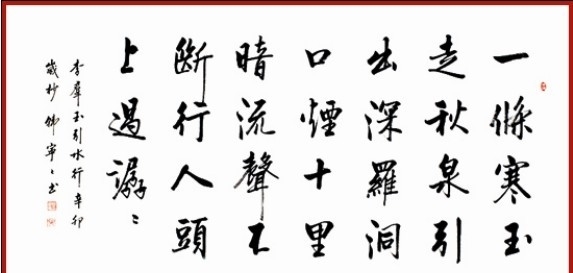 一條寒玉
走秋泉引
出深羅洞
口煙十里
暗流聲不
斷行人頭
上過潺〻
李羣玉引水行辛卯
歲杪韩寧〻书